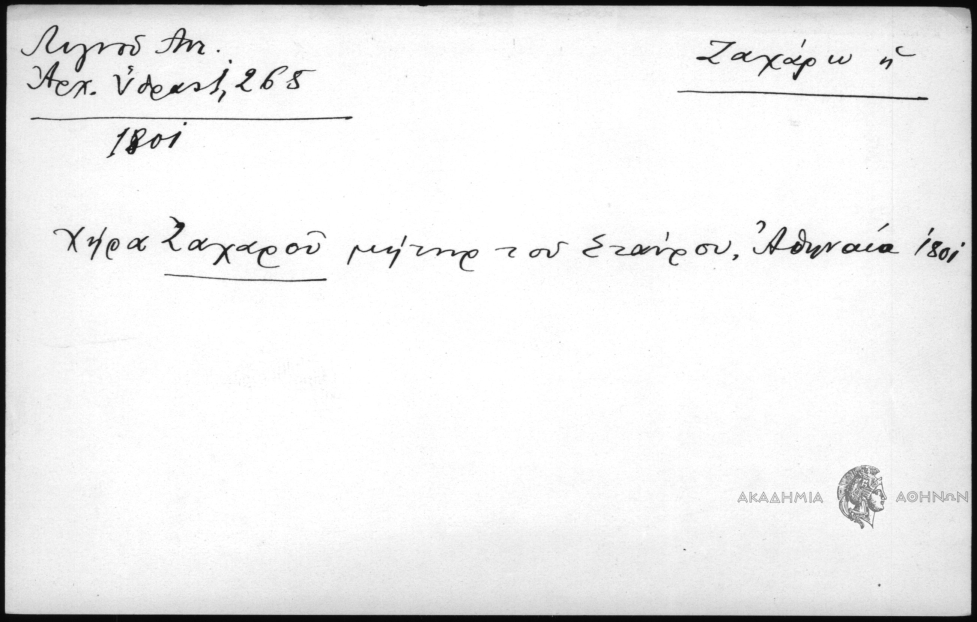 Λιγνοῦ Ἀντ.
Ἀρχ. Ὕδρας 1, 268
1801
Ζαχάρω ἡ
Χήρα Ζαχαροῦ μήτηρ του Σταύρου, Ἀθηναία 1801
ΑΚΑΔΗΜΙΑ ΑΘΗΝΩΝ